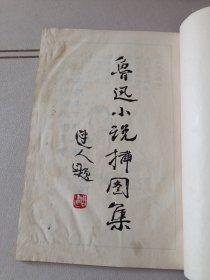 鲁迅小说插图集
建人题